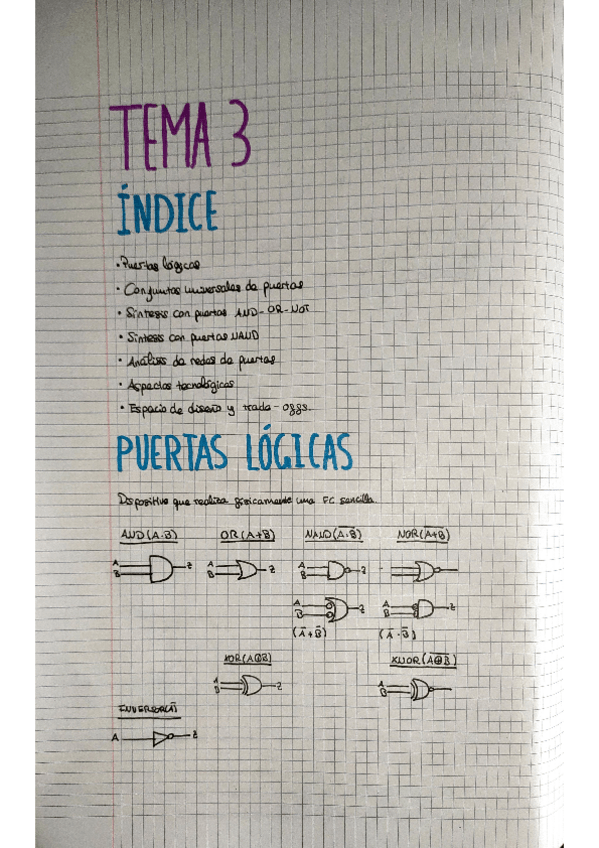 TEMA 3
ÍNDICE
· Puertas lógicas
· Conjuntos universales de puertas
· Síntesis con puertas AND-OR-NOT
· Síntesis con puertas NAND
· Análisis de redes de puertas
· Aspectos tecnológicos
· Espacio de diseño y trade-offs.
PUERTAS LÓGICAS
Dispositivo que realiza físicamente una FC sencilla
AND (A·B) OR (A+B) NAND (A̅·̅B̅) NOR (A̅+̅B̅)
A B Z A B Z A B Z
A B Z A B Z
(A̅+B̅) (A̅·B̅)
XOR (A⊕B) XNOR (A̅⊕̅B̅)
A B Z A B
INVERSOR (A̅)
A Z